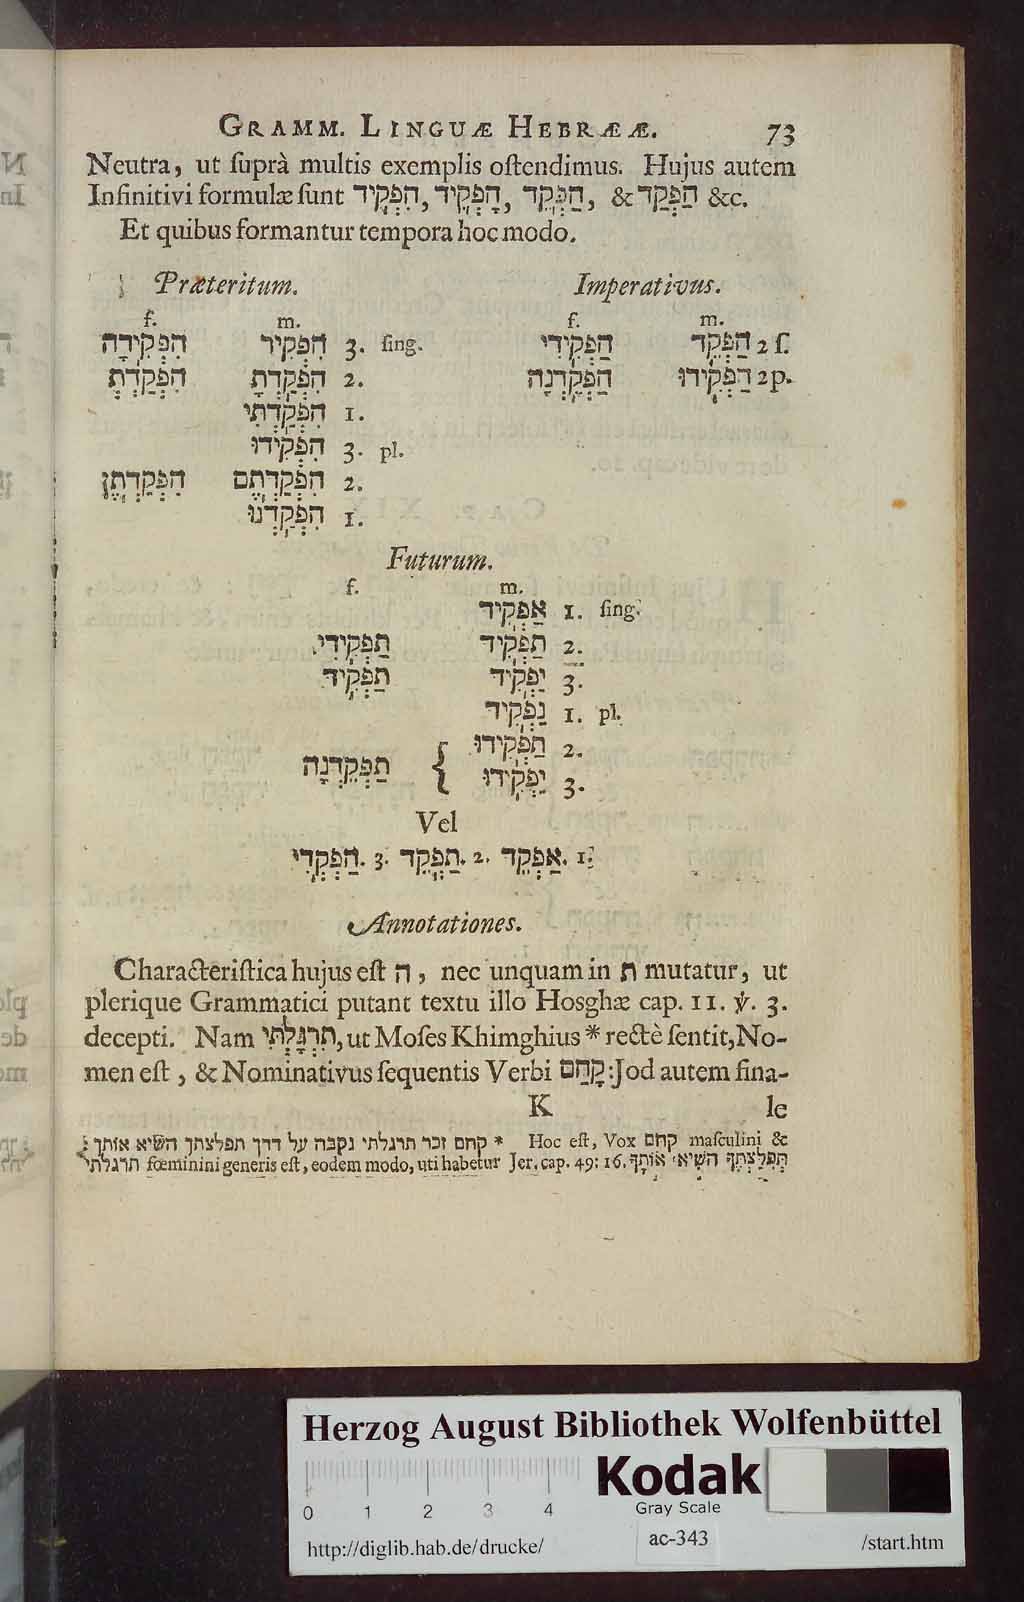 GRAMM. LINGUÆ HEBRÆÆ. 73
Neutra, ut ſuprà multis exemplis oſtendimus. Hujus autem
Infinitivi formulæ ſunt הִפְקִיד, הָפְקֵיד, הַפְקֵד, & הַפְקַד &c.
Et quibus formantur tempora hoc modo.
Præteritum. Imperativus.
f. m. f. m.
הִפְקִידָה הִפְקִיד 3. ſing. הַפְקִידִי הַפְקֵד 2 ſ.
הִפְקַדְתְּ הִפְקַדְתָּ 2. הַפְקֵדְנָה הַפְקִידוּ 2 p.
הִפְקַדְתִּי 1.
הִפְקִידוּ 3. pl.
הִפְקַדְתֶּן הִפְקַדְתֶּם 2.
הִפְקַדְנוּ 1.
Futurum.
f. m.
אַפְקִיד 1. ſing.
תַפְקִידִי תַפְקִיד 2.
תַפְקִיד יַפְקִיד 3.
נַפְקִיד 1. pl.
תַפְקִידוּ 2.
תַפְקֵדְנָה { יַפְקִידוּ 3.
Vel
1. אַפְקֵד. 2. תַפְקֵד. 3. הַפְקְדִי
Annotationes.
Characteriſtica hujus eſt ה, nec unquam in ת mutatur, ut
plerique Grammatici putant textu illo Hosghæ cap. 11. ℣. 3.
decepti. Nam תִרְגָּלְתִּי, ut Moſes Khimghius * rectè ſentit, No-
men eſt, & Nominativus ſequentis Verbi קָחַם: Jod autem fina-
K le
* קחם זכר תרגלתי נקבה על דרך תפלצתך השיא אותך: Hoc eſt, Vox קחם maſculini &
תרגלתי fœminini generis eſt, eodem modo, uti habetur Jer. cap. 49: 16. תִּפְלַצְתְּךָ הִשִּׁיא אוֹתָךְ
Herzog August Bibliothek Wolfenbüttel
Kodak
Gray Scale
0 1 2 3 4
http://diglib.hab.de/drucke/ ac-343 /start.htm